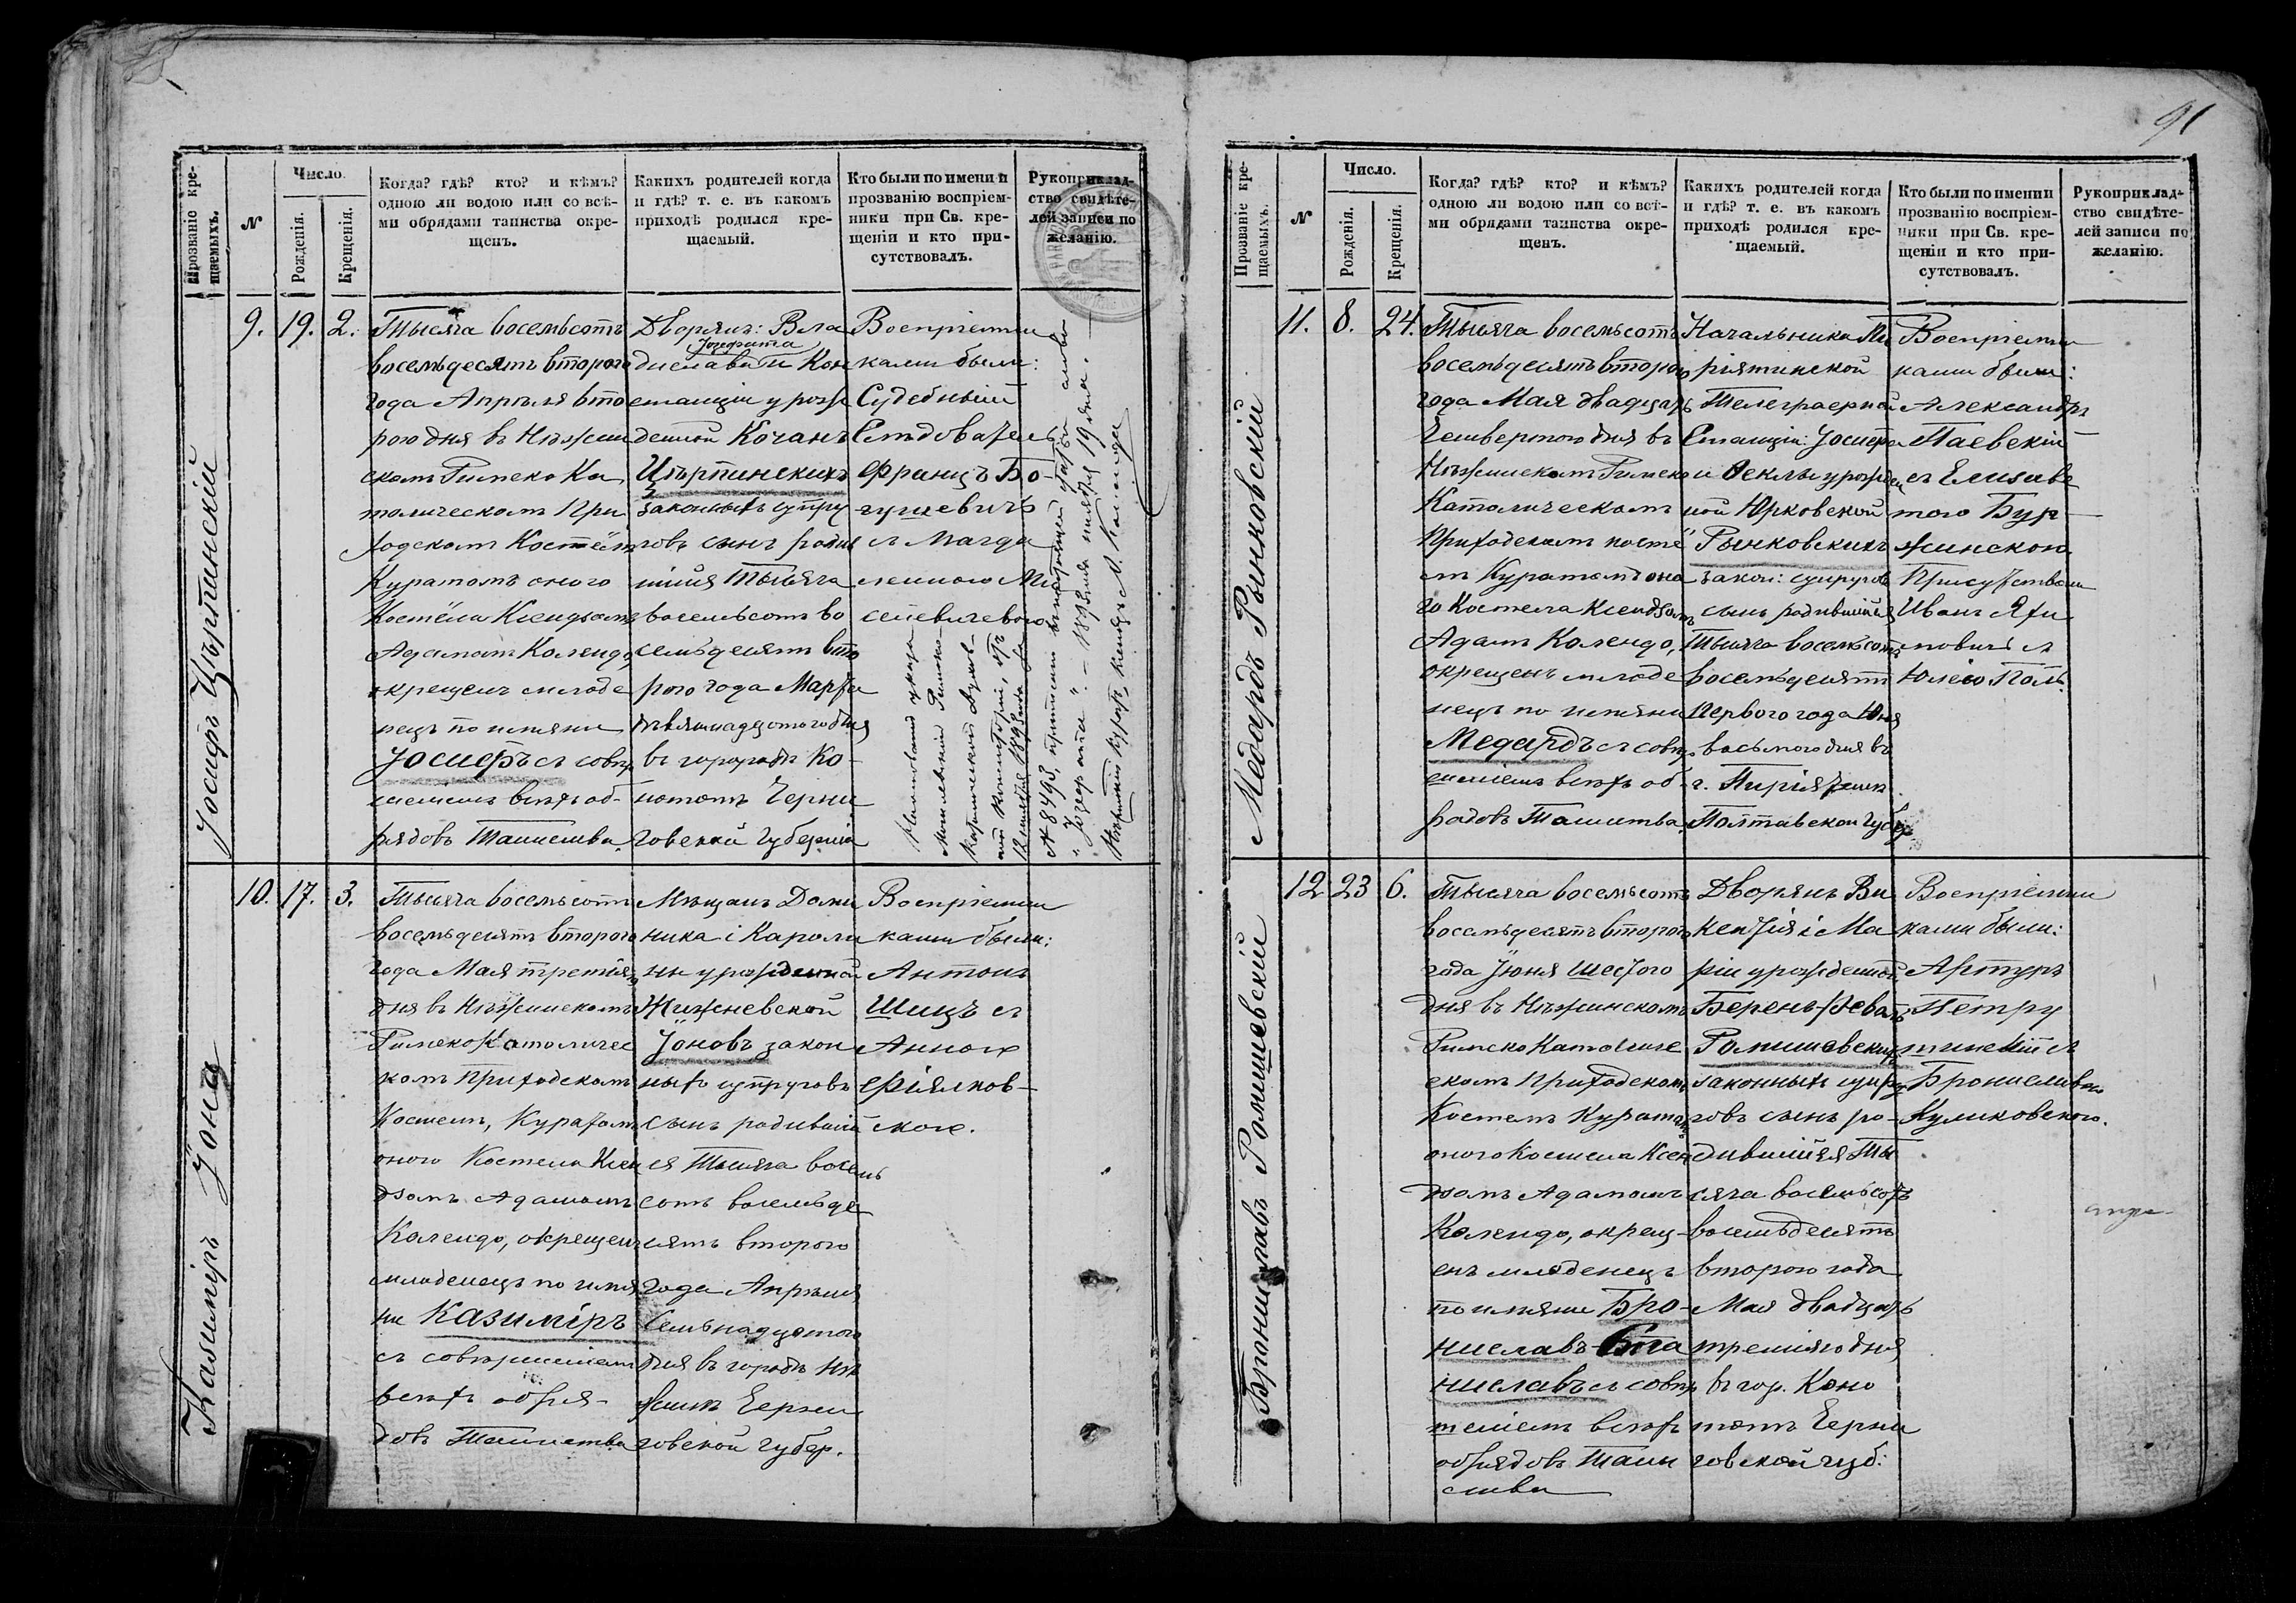 91
Прозваніе кре-
щаемыхъ.
N
Число.
Рожденія.
Крещенія.
Когда? гдѣ? кто? и кѣмъ?
одною ли водою или со всѣ-
ми обрядами таинства окре-
щенъ.
Какихъ родителей когда
и гдѣ? т. е. въ какомъ
приходѣ родился кре-
щаемый.
Кто были по имени и
прозванію воспріем-
ники при Св. кре-
щеніи и кто при-
сутствовалъ.
Рукоприклад-
ство свидѣте-
лей записи по
желанію.
Іосифъ Цѣрпинскій
9. 19. 2.
Тысяча восемьсотъ
восемьдесятъ второго
года Апрѣля вто
рого дня въ Нѣжин
скомъ Римско Ка
толическомъ При
ходскомъ Костёлѣ
Куратомъ оного
Костёла Ксендзомъ
Адамомъ Колендо,
окрещенъ младе
нецъ по имени
Іосифъ съ совер
шеніемъ всѣхъ об-
рядовъ Таинства.
Дворянъ: Вла
Іозефата
дислава и Кон
станціи урож
денной Кочанъ
Цѣрпинскихъ
законныхъ супру
говъ сынъ родив
шійся Тысяча
восемьсотъ во
семьдесятъ вто
рого года Марта
дѣвятнадцатого дня
въ городѣ Ко-
нотопѣ Черни
говской Губерніи
Воспріемни
ками были:
Судебный
Слѣдователь
Францъ Бо-
гушевичъ
съ Магда
леною Ми
сѣевичевою
На основаніи указа
Могилевской Римско-
Католической Духов-
ной Консисторіи, отъ
12 1895 года за
N 8495 приписано въ настоящей статьѣ слово
„Іозефата". – 1895 года 19 дня. –
Куратъ Ксендзъ А. Колендо
Казиміръ Іонъ
10. 17. 3.
Тысяча восемьсотъ
восемьдесятъ второго
года Мая третьяго
дня въ Нѣжинскомъ
Римско Католичес
комъ Приходскомъ
Костелѣ, Куратомъ
оного Костела Ксен
дзомъ Адамомъ
Колендо, окрещенъ
младенецъ по име
ни Казиміръ
съ совершеніемъ
всѣхъ обря-
довъ Таинства
Мѣщанъ Доми
ника і Кароли
ны урожденной
Жижневской
Іоновъ закон
ныхъ супруговъ
сынъ родившій
ся Тысяча восемь
сотъ восемьде
сятъ второго
года Апрѣля
Семьнадцатого
дня въ городѣ Нѣ
жинѣ Черни
говской губер.
Воспріемни
ками были:
Антонъ
Шицъ съ
Анною
Фіялков-
скою.
Прозваніе кре-
щаемыхъ.
N
Число.
Рожденія.
Крещенія.
Когда? гдѣ? кто? и кѣмъ?
одною ли водою или со всѣ-
ми обрядами таинства окре-
щенъ.
Какихъ родителей когда
и гдѣ? т. е. въ какомъ
приходѣ родился кре-
щаемый.
Кто были по имени и
прозванію воспріем-
ники при Св. кре-
щеніи и кто при-
сутствовалъ.
Рукоприклад-
ство свидѣте-
лей записи по
желанію.
Медардъ Рынковскій
11. 8. 24.
Тысяча восемьсотъ
восемьдесятъ второго
года Мая двадцать
Четвертого дня въ
Нѣжинскомъ Римско
Католическомъ
Приходскомъ костё
лѣ Куратомъ она
го Костела Ксендзомъ
Адамъ Колендо,
окрещенъ младе
нецъ по имени
Медардъ съ совер
шеніемъ всѣхъ об
рядовъ Таинства.
Начальника Пи
рятинской
Телеграфной
Станціи: Іосифа
и Феклы урожден
ной Юрковской
Рынковскихъ
закон: супруговъ
сынъ родившійся
Тысяча восемьсотъ
восемьдесятъ
Первого года Юня
восьмого дня въ
г. Пирятинѣ
Полтавской Губер.
Воспріемни
ками были:
Александръ
Паевскій
съ Елизаве
тою Бур-
жинскою
Присутствовали
Иванъ Яхи
мовичъ съ
Юлею Поль.
Брониславъ Ромишевскій
12 23 6.
Тысяча восемьсотъ
восемьдесятъ второго
года Іюня шестого
дня въ Нѣжинскомъ
Римско Католиче
скомъ Приходскомъ
Костелѣ Куратомъ
оного Костела Ксен
дзомъ Адамомъ
Колендо, окрещ-
енъ младенецъ
по имени Бро-
ниславъ-Ста
ниславъ съ совер
шеніемъ всѣхъ
обрядовъ Таин
ства
Дворянъ Ви
кентія і Ма
ріи урожденной
Беренс
Ромишевскихъ
законныхъ супру
говъ сынъ ро-
дившійся Ты
сяча восемьсотъ
восемьдесятъ
второго года
Мая двадцать
третьяго дня
въ гор. Коно
топѣ Черни
говской губ:
Воспріемни
ками были:
Артуръ
Петру
шинскій съ
Брониславою
Куликовского.